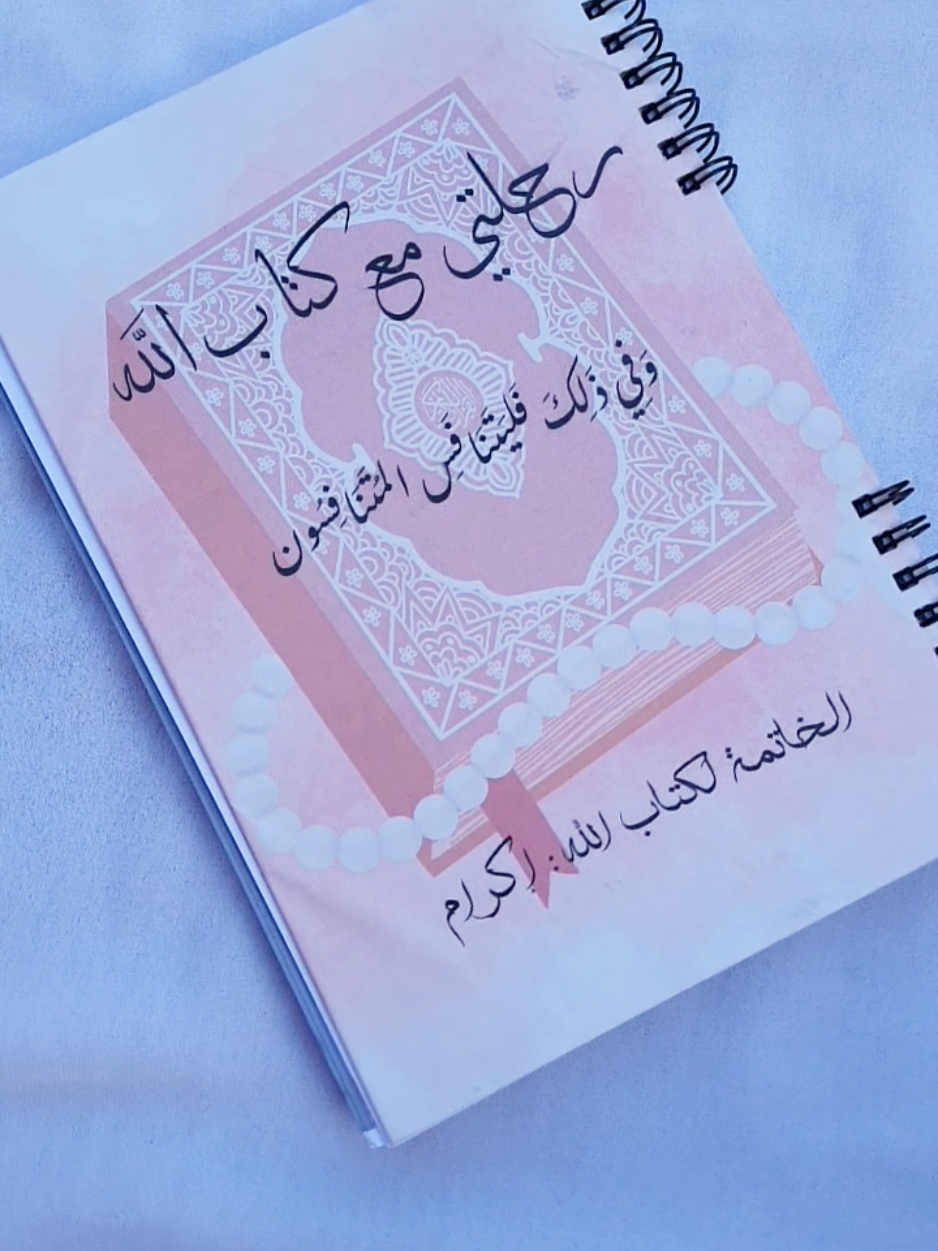 رحلتي مع كتاب اللَّه
وَفِي ذَٰلِكَ فَلْيَتَنَافَسِ الْمُتَنَافِسُونَ
الخاتمة لكتاب الله: إكرام